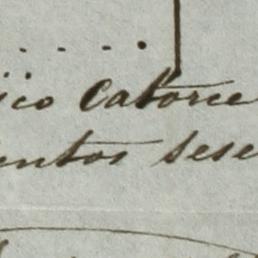 ico catorce
entos sese